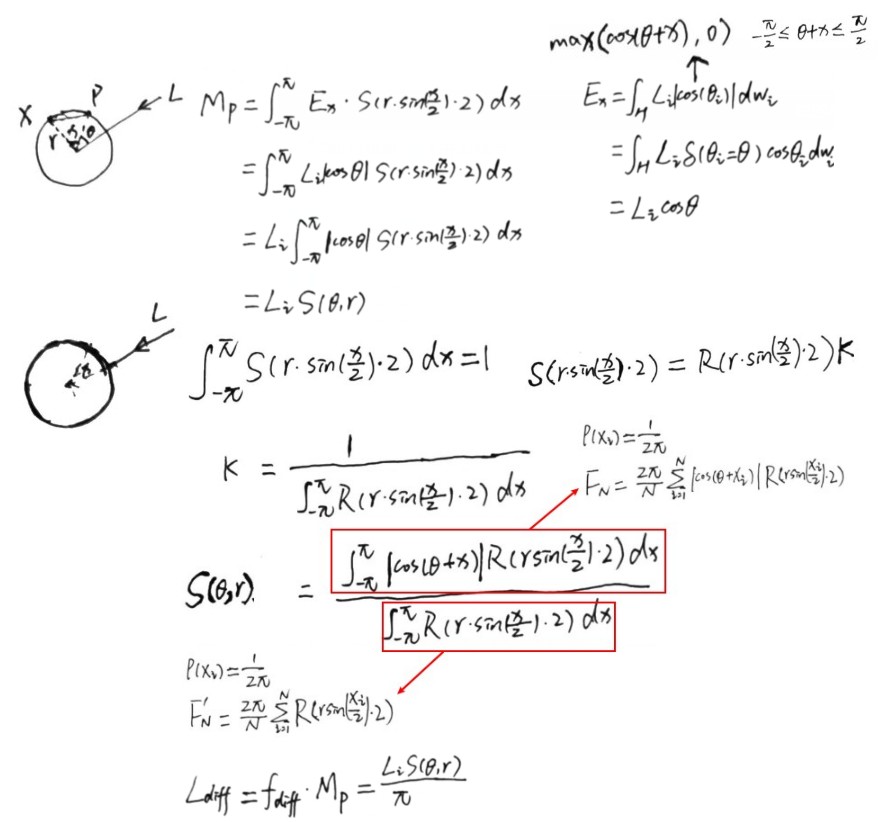 max(cos(θ+x), 0) -π/2 ≤ θ+x ≤ π/2
X P L r x θ
M_P = ∫_{-π}^{π} E_x · S(r·sin(x/2)·2) dx
E_x = ∫_H L_i |cos(θ_i)| dw_i
= ∫_{-π}^{π} L_i |cosθ| S(r·sin(x/2)·2) dx
= ∫_H L_i δ(θ_i=θ) cosθ_i dw_i
= L_i ∫_{-π}^{π} |cosθ| S(r·sin(x/2)·2) dx
= L_i cosθ
= L_i S(θ,r)
L
∫_{-π}^{π} S(r·sin(x/2)·2) dx = 1
S(r·sin(x/2)·2) = R(r·sin(x/2)·2) K
K = 1 / ∫_{-π}^{π} R(r·sin(x/2)·2) dx
P(x_i) = 1/2π
F_N = 2π/N Σ_{i=1}^{N} |cos(θ+x_i)| R(r sin(x_i/2)·2)
S(θ,r) = ∫_{-π}^{π} |cos(θ+x)| R(r sin(x/2)·2) dx / ∫_{-π}^{π} R(r·sin(x/2)·2) dx
P(x_i) = 1/2π
F'_N = 2π/N Σ_{i=1}^{N} R(r sin(x_i/2)·2)
L_diff = f_diff · M_P = L_i S(θ,r) / π